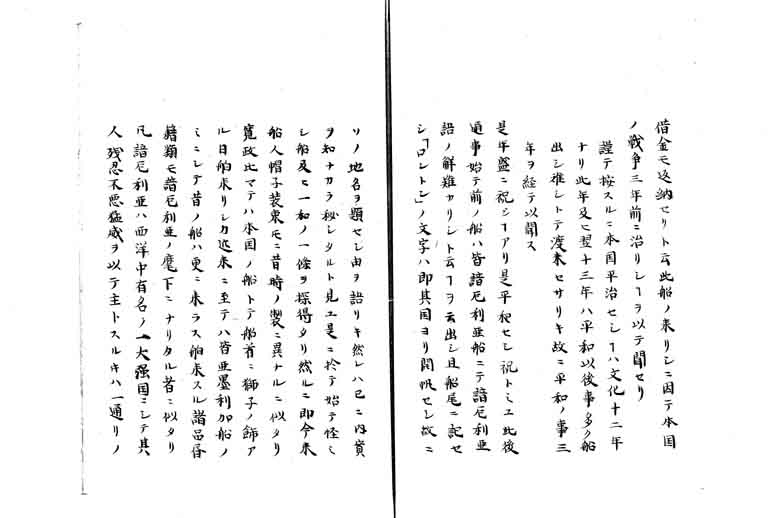 借金モ返納セリト云此船ノ来リシニ因テ本国
ノ戦争三年前ニ治リシヿヲ以テ聞セリ
謹テ按スルニ本国平治セシハ文化十二年
ナリ此年及ヒ翌十三年ハ平和以後事多ク船
出シ難シトテ渡来セサリキ故ニ平和ノ事三
年ヲ経テ以聞ス
是年盤ニ祝シヿアリ是平和セシ祝トミユ此後
通事始テ前ノ船ハ皆諳厄利亜船ニテ諳厄利亜
語ノ解難カリシト云ヿヲ云出シ且船尾ニ記セ
シ「ロントン」ノ文字ハ即其国ヨリ開帆セシ故ニ
ソノ地名ヲ題セシ由ヲ語リキ然レハ已ニ内實
ヲ知ナカラ秘シタルト見エ是ニ於テ始テ怪ミ
シ船及ヒ一和ノ一條ヲ探得タリ然ルニ即今来
船人帽子装束モミ昔時ノ製ニ異ナルニ似タリ
寛政比マテハ本国ノ船トテ船首ニ獅子ノ飾ア
ル日舶来リシカ近来ニ至テハ皆亜墨利加船ノ
ミニシテ昔ノ船ハ更ニ来ラス舶来スル諸品書
籍類モ諳厄利亜ノ麾下ニナリタル者ニ似タリ
凡諳厄利亜ハ西洋中有名ノ一大强国ニシテ其
人残忍不悪猛威ヲ以テ主トスルキハ一通リノ